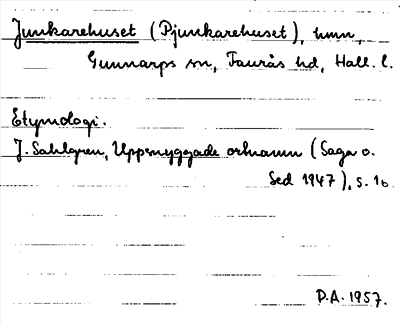 Junkarehuset (Pjunkarehuset), hmn,
Gunnarps sn, Faurås hd, Hall. l.
Etymologi.
J. Sahlgren, Uppsnyggade ortnamn (Saga o.
Sed 1947), s. 16
D.A. 1957.